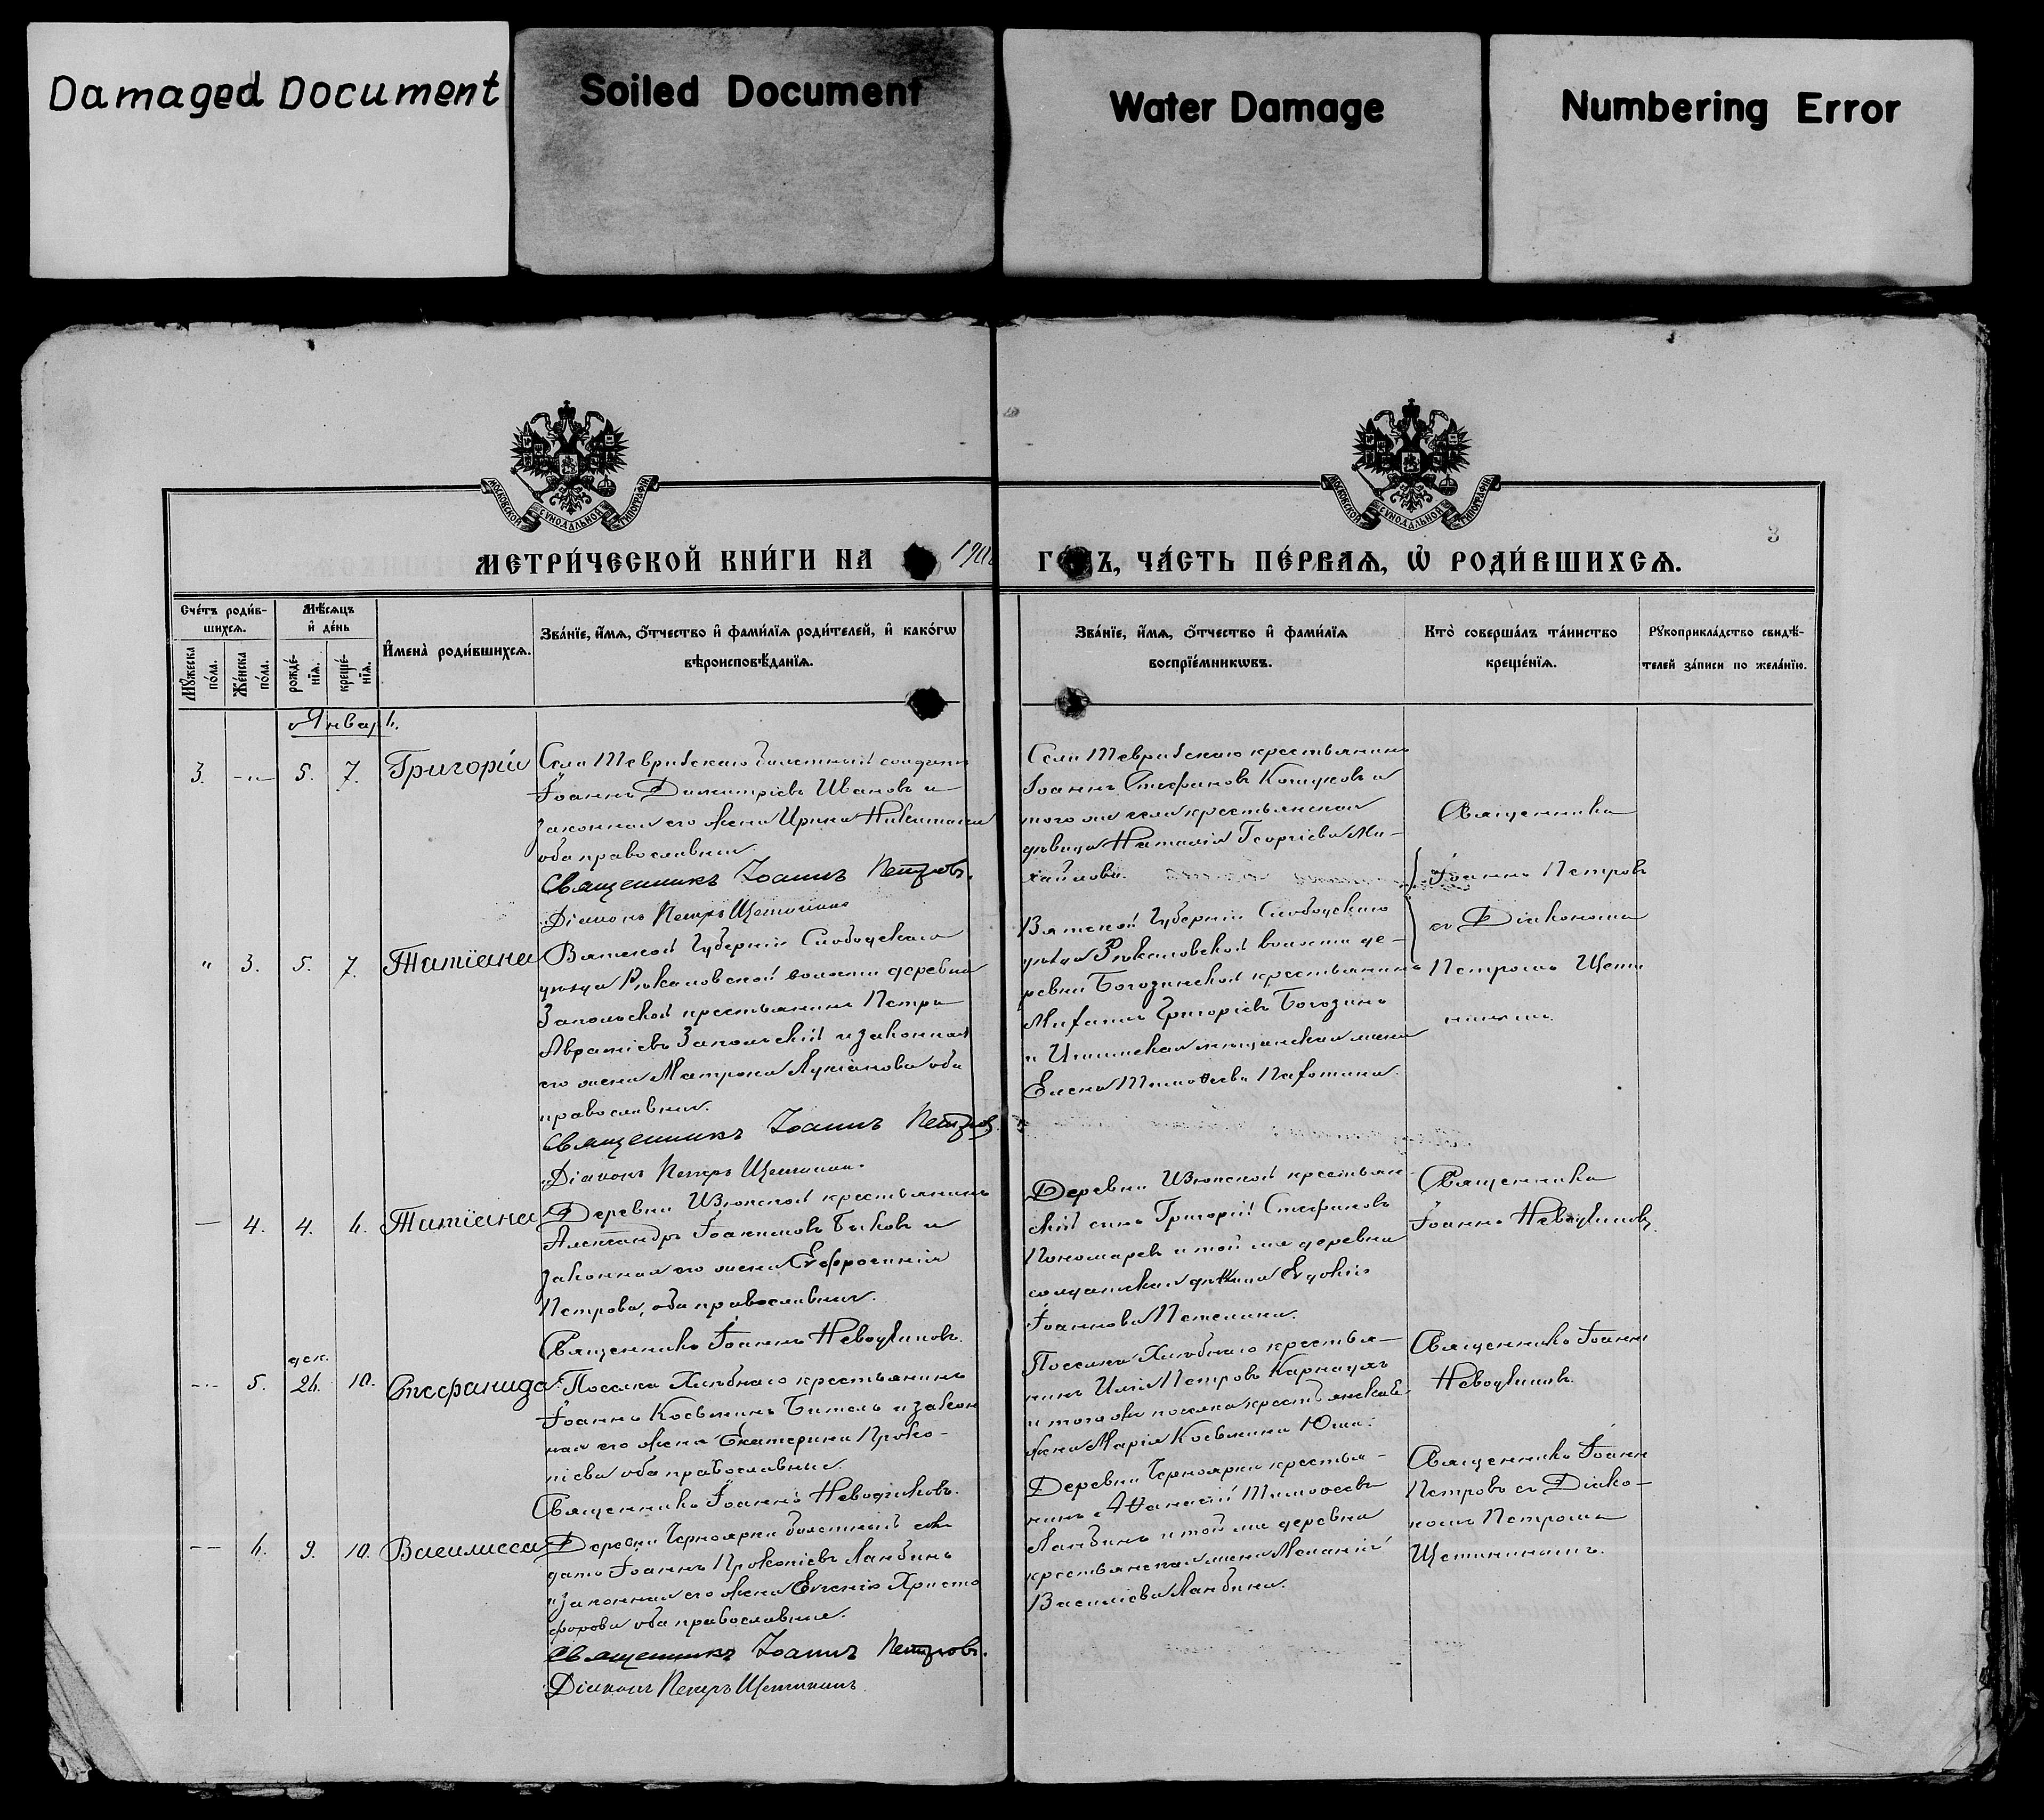 Damaged Document
Soiled Document
Water Damage
Numbering Error
МОСКОВСКОЙ СУНОДАЛЬНОЙ ТИПОГРАФІИ
МОСКОВСКОЙ СУНОДАЛЬНОЙ ТИПОГРАФІИ
3
МЕТРИ́ЧЕСКОЙ КНИ́ГИ НА
ЧА́СТЬ ПЕ́РВАѦ, Ѡ҆ РОДИ́ВШИХСѦ.
Сче́тъ роди́в-
шихсѧ.
Мѣ́сѧцъ
и҆ де́нь
Мꙋ́жеска
по́ла.
Же́нска
по́ла.
рожде́-
нїѧ.
креще́-
нїѧ.
И҆мена̀ роди́вшихсѧ.
Зва́нїе, и҆́мѧ, ѻ҆́тчество и҆ фами́лїѧ роди́телей, и҆ како́гѡ
вѣроисповѣ́данїѧ.
Зва́нїе, и҆́мѧ, ѻ҆́тчество и҆ фами́лїѧ
воспрїе́мникѡвъ.
Кто̀ соверша́лъ та́инство
креще́нїѧ.
Рꙋкоприкла́дство свидѣ́-
телей за́писи по жела́нїю.
Январь.
3. 5. 7. Григорій
Села Тевризскаго билетный солдатъ
Іоаннъ Димитріевъ Ивановъ и
законная его жена Ирина Никитина
оба православные.
Священникъ Іоаннъ Петровъ.
Діаконъ Петръ Щетининъ
Села Тевризскаго крестьянинъ
Іоаннъ Стефановъ и
того же села крестьянская
дѣвица Наталія Георгіева Ми-
хайлова.
Священникъ
Іоаннъ Петровъ
съ Діакономъ
Петромъ Щети
нинымъ.
" 3. 5. 7. Татіана
Вятской Губерніи Слободскаго
уѣзда волости деревни
Запольской крестьянинъ Петръ
Запольскій и законная
его жена Матрона Лукіанова оба
православные.
Священникъ Іоаннъ Петровъ
Діаконъ Петръ Щетининъ.
Вятской Губерніи Слободскаго
уѣзда волости де-
ревни Богозинской крестьянинъ
Михаилъ Григоріевъ Богозинъ
и Ишимская мѣщанская жена
Елена Тимоѳеева
4. 4. 6. Татіана
Деревни Изюкской крестьянинъ
Александръ Іоакимовъ Быковъ и
законная его жена Евфросинія
Петрова, оба православные.
Священникъ Іоаннъ Неводчиковъ.
Деревни Изюкской крестьян-
скій сынъ Григорій Стефановъ
Пономаревъ и той же деревни
солдатская дѣвица Евдокія
Іоаннова
Священникъ
Іоаннъ Неводчиковъ.
дек.
5. 26. 10. Стефанида
Поселка Хлѣбнаго крестьянинъ
Іоаннъ Косьминъ и закон
ная его жена Екатерина Проко-
піева оба православные.
Священникъ Іоаннъ Неводчиковъ.
Поселка Хлѣбнаго крестья-
нинъ Илія Петровъ Карнаухъ
и того же поселка крестьянская
жена Марія Косьмина
Священникъ Іоаннъ
Неводчиковъ.
6. 9. 10. Василисса
Деревни Черноярки билетный сол
датъ Іоаннъ Прокопіевъ Ланбинъ
и законная его жена Евгенія Христо
форова оба православные.
Священникъ Іоаннъ Петровъ.
Діаконъ Петръ Щетининъ
Деревни Черноярки крестья-
нинъ Аѳанасій Тимоѳеевъ
Ланбинъ и той же деревни
крестьянская жена Меланія
Василіева Ланбина.
Священникъ Іоаннъ
Петровъ съ Діако-
номъ Петромъ
Щетининымъ.